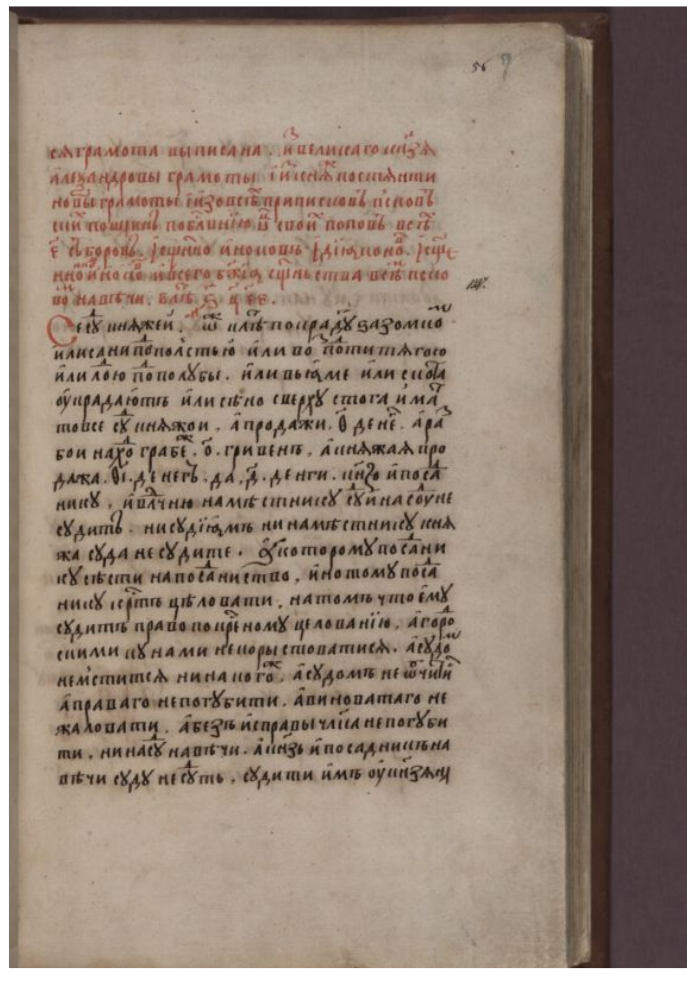 сѧ грамота выписана . и҆ великаго кнѕ҃ѧ
а҆лезандровы грамоты . і҆ и҆ кнѧ костѧнти
новы грамоты і҆изовсѣ приписковъ пъсковъ
ски пошлинъ поблвнїю ѿ свои поповъ всѣ
е҃ съборовъ. і҆сщнно и҆ноковъ і҆дїꙗконо . і҆сщ
нно и҆носо и҆всего бж҃їѧ сщньства всѣ пско
во навѣчи. влѣ . ѕ ц҃ е҃е .
Се су кнѧжеи . ѿ клѣ покраду зазомко
и҆лисани пополстью и҆ли во поти тѧгою
и҆ли лою пополубы . и҆ли въꙗме и҆ли скота
оукрадають и҆ли сѣно сверху стога и҆ма
товсе су кнѧжои . а҆продажи . ѳ҃ дене . а҆ра
бои нахо грабе . о҃ . гривенъ , а҆кнѧжаꙗ про
дажа . ѳ҃і . денегъ . да . д҃ . денги . кнз҃ю и҆поса
нику , и҆влчню намѣстнику су и҆насоу не
судитъ . нисудїꙗмъ нинамѣстнику кнѧ
жа суда несудите . а҆которому посани
ку сѣсти напосаниство , и҆нотому поса
нику кртъ цѣловати , натомъ что е҆му
судитъ право покреному целованїю , а҆горо
скими кунами некорыстоватисѧ . а҆судо
немститисѧ нинакого , а҆судомъ не ѿчи
а҆праваго непогубити . а҆виноватаго не
жаловати . а҆безъ и҆справы члка непогуби
ти . нинасу навѣчи . а҆кнзь и҆посадникъ на
вѣчи суду несуть , судити и҆мъ оу кнѕѧ н
56